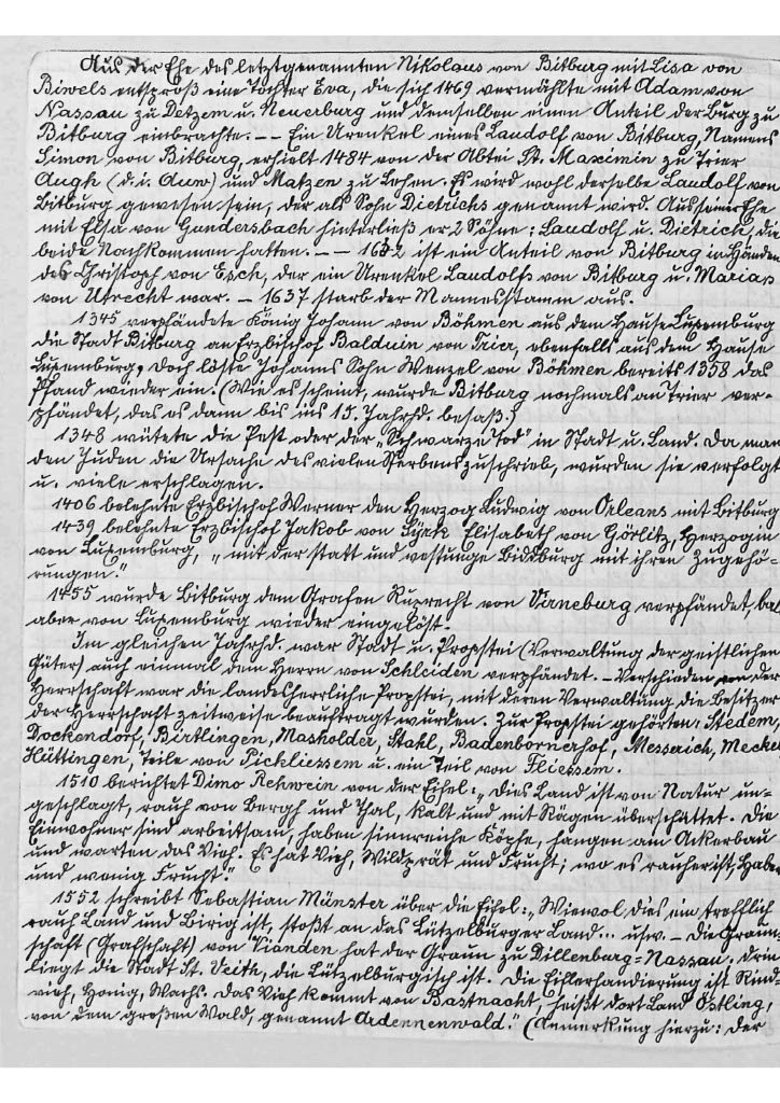 Aus der Ehe des letztgenannten Nikolaus von Bitburg mit Lisa von
Biwels entsproß eine Tochter Eva, die sich 1469 vermählte mit Adam von
Nassau zu Detzem u. Neuerburg und demselben einen Anteil der Burg zu
Bitburg einbrachte. -- Ein Urenkel eines Laudolf von Bitburg, Namens
Simon von Bitburg, erhielt 1484 von der Abtei St. Maximin zu Trier
Augh (d. i. Auw) und Matzen zu Lehen. Es wird wohl derselbe Laudolf von
Bitburg gewesen sein, der als Sohn Dietrichs genannt wird. Aus seiner Ehe
mit Elsa von Gundersbach hinterließ er 2 Söhne: Laudolf u. Dietrich, die
beide Nachkommen hatten. -- 1632 ist ein Anteil von Bitburg in Händen
des Christoph von Esch, der ein Urenkel Laudolfs von Bitburg u. Marias
von Utrecht war. - 1637 starb der Mannesstamm aus.
1345 verpfändete König Johann von Böhmen aus dem Hause Luxemburg
die Stadt Bitburg an Erzbischof Balduin von Trier, ebenfalls aus dem Hause
Luxemburg; doch löste Johanns Sohn Wenzel von Böhmen bereits 1358 das
Pfand wieder ein. (Wie es scheint, wurde Bitburg nochmals an Trier ver-
pfändet, das es dann bis ins 15. Jahrhd. besaß.)
1348 wütete die Pest oder der „Schwarze Tod" in Stadt u. Land. Da man
den Juden die Ursache des vielen Sterbens zuschrieb, wurden sie verfolgt
u. viele erschlagen.
1406 belehnte Erzbischof Werner den Herzog Ludwig von Orleans mit Bitburg
1439 belehnte Erzbischof Jakob von Syrk Elisabeth von Görlitz, Herzogin
von Luxemburg, „mit der statt und vestunge Bideburg mit ihren Zugehö-
rungen."
1455 wurde Bitburg dem Grafen Ruprecht von Virneburg verpfändet, bal
aber von Luxemburg wieder eingelöst.
Im gleichen Jahrhd. war Stadt u. Propstei (Verwaltung der geistlichen
Güter) auch einmal dem Herrn von Schleiden verpfändet. - Verschieden von der
Herrschaft war die landesherrliche Propstei, mit deren Verwaltung die Besitzer
der Herrschaft zeitweise beauftragt wurden. Zur Propstei gehörten: Stedem,
Dockendorf, Birtlingen, Masholder, Stahl, Badenbornerhof, Messerich, Mecke
Hüttingen, Teile von Pickliessem u. ein Teil von Fliessem.
1510 berichtet Dimo Rehwein von der Eifel: „Dies Land ist von Natur un-
geschlagt, rauch von Bergh und Thal, kalt und mit Rägen überschüttet. Die
Einwohner sind arbeitsam, haben sinnreiche Köpfe, hangen am Ackerbau
und warten das Vieh. Es hat Vieh, Wildprät und Frucht; wo es raucher ist, Haber
und wenig Frucht."
1552 schreibt Sebastian Münster über die Eifel: „Wiewol dies ein trefflich
rauch Land und Birig ist, stoßt an das Lützelburger Land... usw. - Die Graum-
schaft (Grafschaft) von Vianden hat der Graun zu Dillenburg=Nassau. Drin
liegt die Stadt St. Veith, die Lützelburgisch ist. Die Eiflerhandierung ist Rind-
vieh, Honig, Wachs. Das Vieh kommt von Bastnacht, heißt dort Land Östling,
von dem großen Wald, genannt Ardennenwald." (Anmerkung hierzu: Der